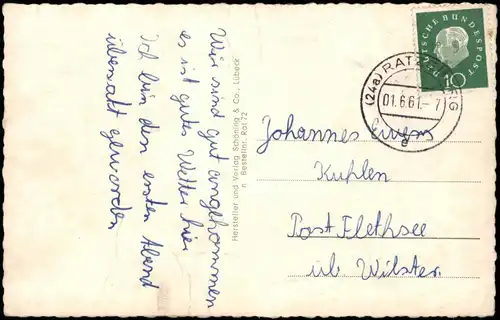 Wir sind gut angekommen
es ist gutes Wetter hier
Ich bin den ersten Abend
übernackt geworden
Hersteller und Verlag Schöning & Co., Lübeck
n Bestellnr. Rat 72
DEUTSCHE BUNDESPOST
10
(24a) RATZEBURG
01.6.61.-7
d
Johannes
Kuhlen
Post Flethsee
üb. Wilster